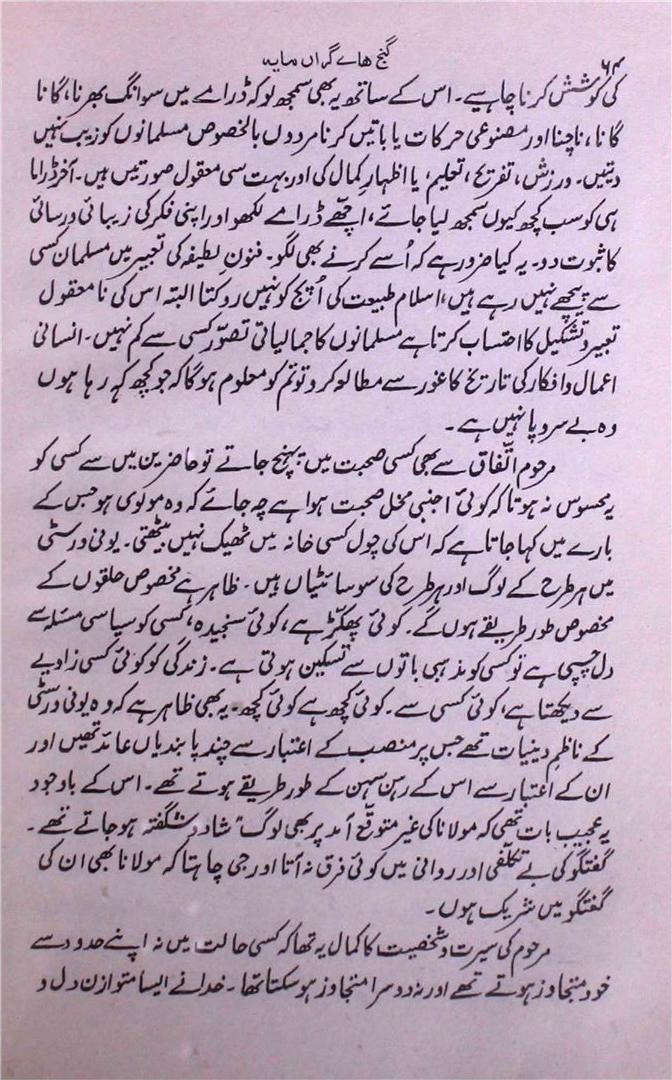 ۶۴
گنج ہائے گراں مایہ
کی کوشش کرنا چاہیے۔ اس کے ساتھ یہ بھی سمجھ لو کہ ڈرامے میں سوانگ بھرنا، گانا
گانا، ناچنا اور مصنوعی حرکات یا باتیں کرنا مردوں بالخصوص مسلمانوں کو زیب نہیں
دیتیں۔ ورزش، تفریح، تعلیم، یا اظہارِ کمال کی اور بہت سی معقول صورتیں ہیں۔ آخر ڈراما
ہی کو سب کچھ کیوں سمجھ لیا جائے، اچھّے ڈرامے لکھو اور اپنی فکر کی زیبائی و رسائی
کا ثبوت دو۔ یہ کیا ضرور ہے کہ اُسے کرنے بھی لگو۔ فنونِ لطیفہ کی تعبیر میں مسلمان کسی
سے پیچھے نہیں رہے ہیں، اسلام طبیعت کی اُپج کو نہیں روکتا البتہ اس کی نامعقول
تعبیر و تشکیل کا احتساب کرتا ہے مسلمانوں کا جمالیاتی تصوّر کسی سے کم نہیں۔ انسانی
اعمال و افکار کی تاریخ کا غور سے مطالعہ کرو تو تم کو معلوم ہوگا کہ جو کچھ کہہ رہا ہوں
وہ بے سر و پا نہیں ہے۔
مرحوم اتّفاق سے بھی کسی صحبت میں پہنچ جاتے تو حاضرین میں سے کسی کو
یہ محسوس نہ ہوتا کہ کوئی اجنبی مخل صحبت ہوا ہے چہ جائے کہ وہ مولوی ہو جس کے
بارے میں کہا جاتا ہے کہ اس کی چول کسی خانہ میں ٹھیک نہیں بیٹھتی۔ یونی ورسٹی
میں ہر طرح کے لوگ اور ہر طرح کی سوسائٹیاں ہیں۔ ظاہر ہے مخصوص حلقوں کے
مخصوص طور طریقے ہوں گے۔ کوئی پھکّڑ ہے، کوئی سنجیدہ، کسی کو سیاسی مسئلہ سے
دل چسپی ہے تو کسی کو مذہبی باتوں سے تسکین ہوتی ہے۔ زندگی کو کوئی کسی زاویے
سے دیکھتا ہے، کوئی کسی سے۔ کوئی کچھ ہے کوئی کچھ۔ یہ بھی ظاہر ہے کہ وہ یونی ورسٹی
کے ناظمِ دینیات تھے جس پر منصب کے اعتبار سے چند پابندیاں عائد تھیں اور
ان کے اعتبار سے اس کے رہن سہن کے طور طریقے ہوتے تھے۔ اس کے باوجود
یہ عجیب بات تھی کہ مولانا کی غیر متوقّع آمد پر بھی لوگ "شاد و شگفتہ" ہو جاتے تھے۔
گفتگو کی بے تکلّفی اور روانی میں کوئی فرق نہ آتا اور جی چاہتا کہ مولانا بھی ان کی
گفتگو میں شریک ہوں۔
مرحوم کی سیرت و شخصیت کا کمال یہ تھا کہ کسی حالت میں نہ اپنے حدود سے
خود متجاوز ہوتے تھے اور نہ دوسرا متجاوز ہو سکتا تھا۔ خدا نے ایسا متوازن دل و